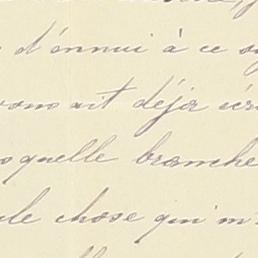 d'ennui à ce
vous ait déjà
quelle branche
chose qui m'